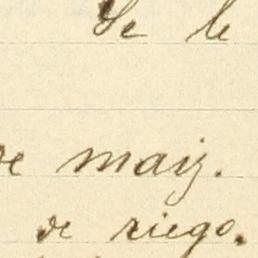 Se le
de maiz.
de riego.